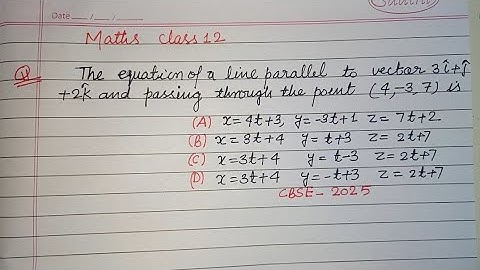 Date ___/___/___
Maths class 12
Q The equation of a line parallel to vector 3î+ĵ
+2k̂ and passing through the point (4,-3,7) is
(A) x=4t+3, y=-3t+1 z=7t+2
(B) x=3t+4 y=t+3 z=2t+7
(C) x=3t+4 y=t-3 z=2t+7
(D) x=3t+4 y=-t+3 z=2t+7
CBSE-2025